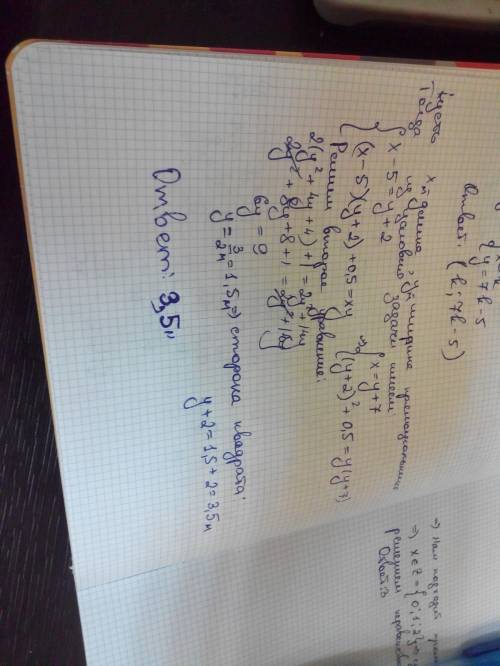 y = 7k - 5
Ответ: (k; 7k - 5)
Пусть x м длина, y м ширина прямоугольника
Тогда из условия задачи имеем
{ x - 5 = y + 2
{ (x - 5)(y + 2) + 0,5 = xy
⇒ { x = y + 7
{ (y + 2)² + 0,5 = y(y + 7)
Решим второе уравнение:
2(y² + 4y + 4) + 1 = 2y² + 14y
2y² + 8y + 8 + 1 = 2y² + 14y
6y = 9
y = 3/2 м = 1,5 м ⇒ сторона квадрата:
y + 2 = 1,5 + 2 = 3,5 м
Ответ: 3,5 м
⇒ Нам подходит
⇒ x ∈ Z = {0; 1; 2}
решением неравен
Ответ: 3